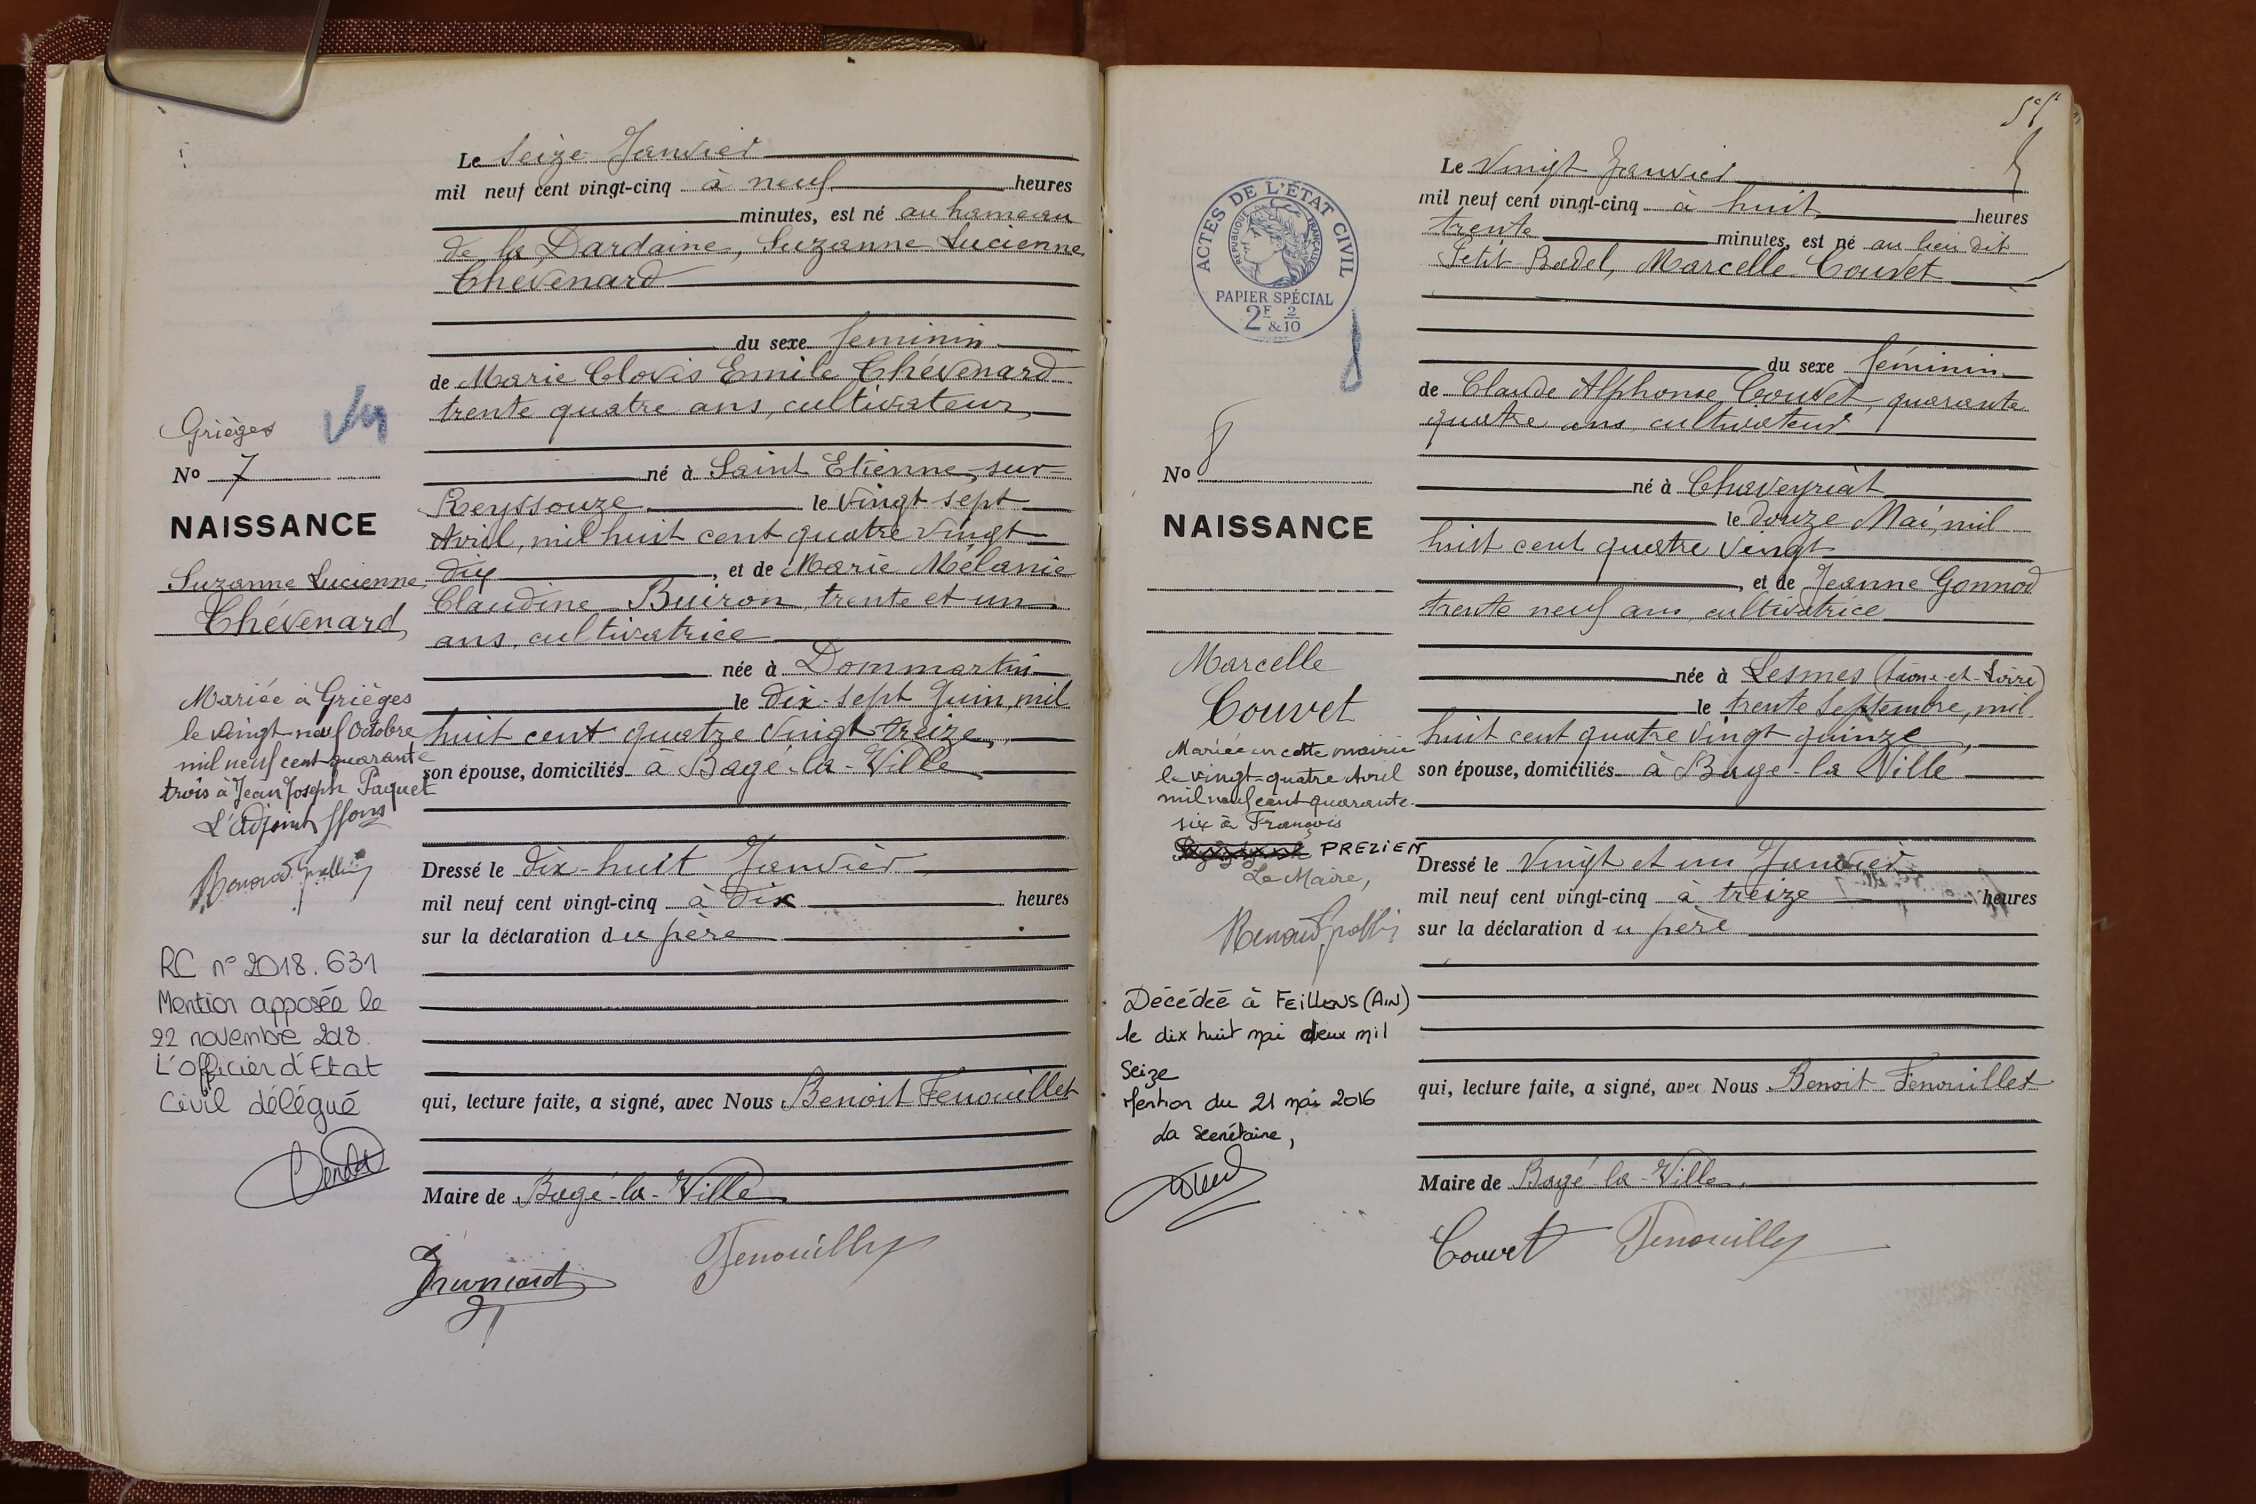 Le Seize Janvier
mil neuf cent vingt-cinq à neuf heures
minutes, est né au hameau
de la Dardaine, Suzanne Lucienne
Chévenard
du sexe féminin
de Marie Clovis Emile Chévenard
trente quatre ans, cultivateur
Grièges
né à Saint Etienne-sur-
No 7
Reyssouze le vingt sept
NAISSANCE
Avril, mil huit cent quatre vingt
dix, et de Marie Mélanie
Suzanne Lucienne
Chévenard
Claudine Buiron, trente et un
ans, cultivatrice
née à Dommartin
le dix-sept Juin, mil
huit cent quatre vingt treize,
son épouse, domiciliés à Bagé-la-Ville
Mariée à Grièges
le vingt neuf Octobre
mil neuf cent quarante
trois à Jean Joseph Paquet
L'adjoint
Dressé le dix-huit Janvier
mil neuf cent vingt-cinq à dix heures
sur la déclaration du père
RC n° 2018.631
Mention apposée le
22 novembre 2018.
L'officier d'Etat
Civil délégué
qui, lecture faite, a signé, avec Nous Benoit Fenouillet
Maire de Bagé-la-Ville
Le vingt Janvier
mil neuf cent vingt-cinq à huit heures
trente minutes, est né au lieu dit
Petit-Badel, Marcelle Couvet
ACTES DE L'ÉTAT CIVIL
RÉPUBLIQUE FRANÇAISE
PAPIER SPÉCIAL
2F & 2/10
8
du sexe féminin
de Claude Alphonse Couvet, quarante
quatre ans, cultivateur
No 8
né à Chaveyriat
le douze Mai, mil
NAISSANCE
huit cent quatre vingt
, et de Jeanne Gonnod
trente neuf ans, cultivatrice
Marcelle
Couvet
née à Lesmes (Saône-et-Loire)
le trente Septembre, mil
huit cent quatre vingt quinze,
son épouse, domiciliés à Bagé-la-Ville
Mariée en cette mairie
le vingt-quatre Avril
mil neuf cent quarante-
six à François
PREZIEN
Le Maire,
Dressé le vingt et un Janvier
mil neuf cent vingt-cinq à treize heures
sur la déclaration du père
Décédée à FEILLENS (AIN)
le dix huit mai deux mil
Seize
Mention du 21 mai 2016
La secrétaire,
qui, lecture faite, a signé, avec Nous Benoit Fenouillet
Maire de Bagé-la-Ville
Couvet